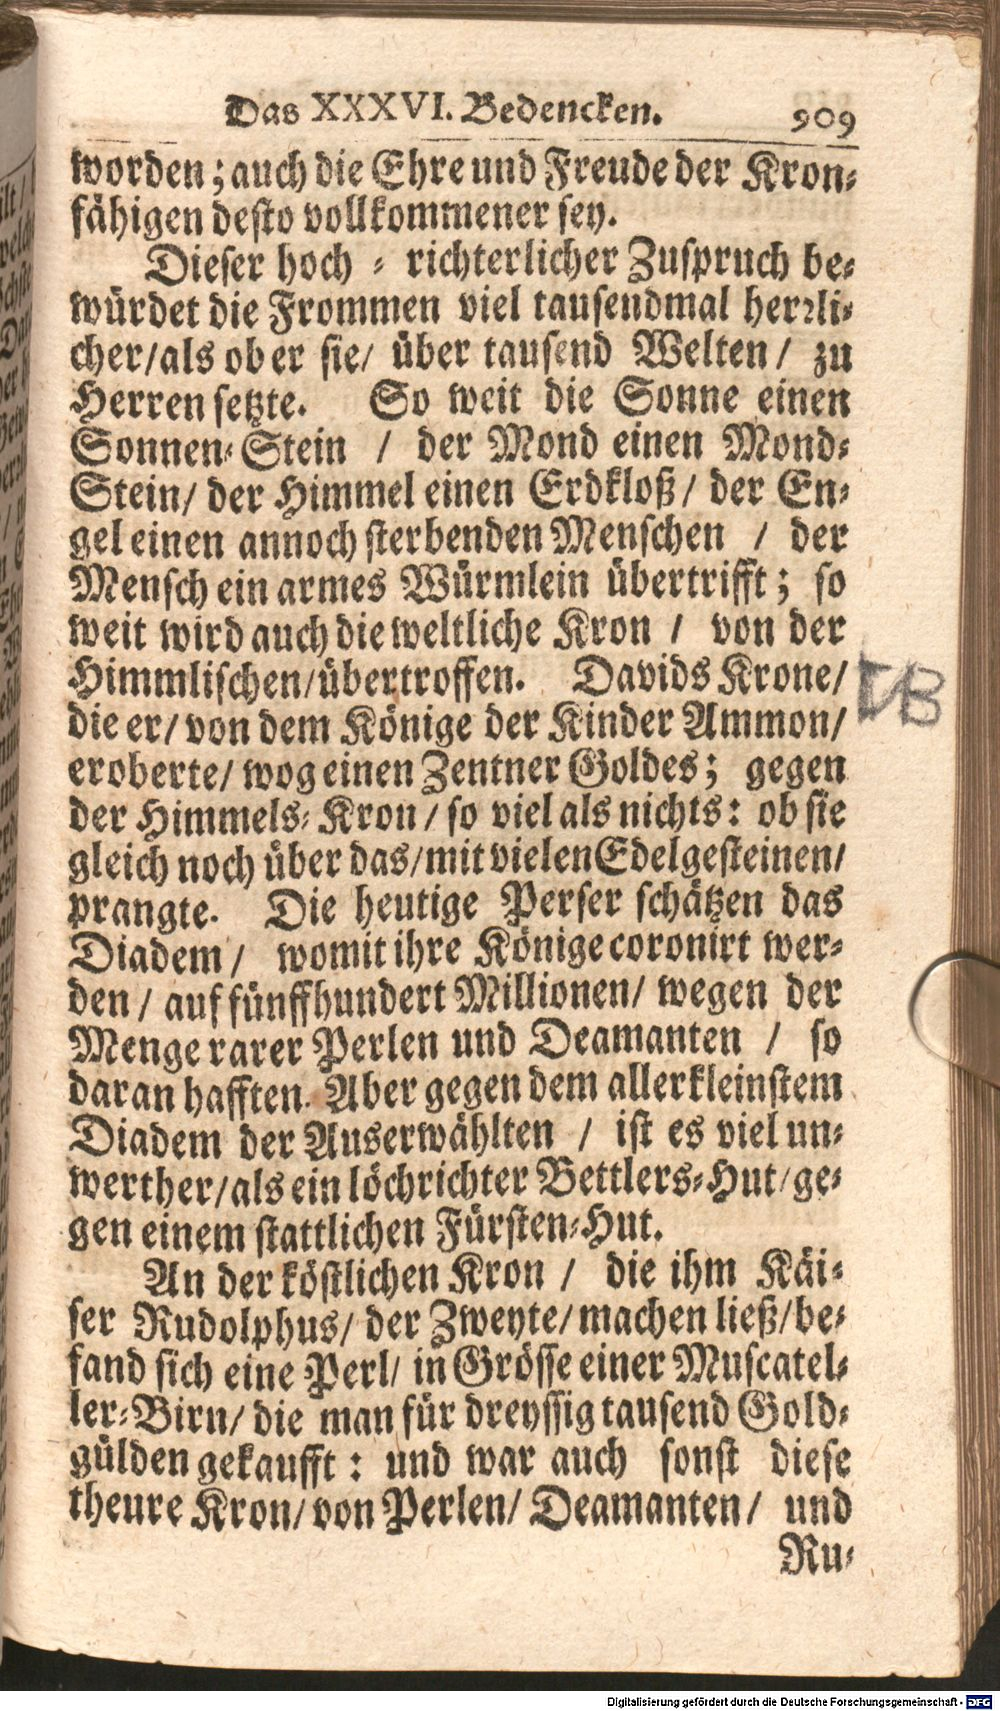 Das XXXVI. Bedencken. 909
worden; auch die Ehre und Freude der Kron-
fähigen desto vollkommener sey.
Dieser hoch - richterlicher Zuspruch be-
würdet die Frommen viel tausendmal herrli-
cher/als ob er sie/ über tausend Welten/ zu
Herren setzte. So weit die Sonne einen
Sonnen-Stein / der Mond einen Mond-
Stein/ der Himmel einen Erdkloß/ der En-
gel einen annoch sterbenden Menschen / der
Mensch ein armes Würmlein übertrifft; so
weit wird auch die weltliche Kron / von der
Himmlischen/übertroffen. Davids Krone/
die er/ von dem Könige der Kinder Ammon/
eroberte/ wog einen Zentner Goldes; gegen
der Himmels-Kron / so viel als nichts: ob sie
gleich noch über das/mit vielen Edelgesteinen/
prangte. Die heutige Perser schätzen das
Diadem / womit ihre Könige coronirt wer-
den / auf fünffhundert Millionen/ wegen der
Menge rarer Perlen und Deamanten / so
daran hafften. Aber gegen dem allerkleinstem
Diadem der Auserwählten / ist es viel un-
werther/als ein löchrichter Bettlers-Hut/ge-
gen einem stattlichen Fürsten-Hut.
An der köstlichen Kron / die ihm Käi-
ser Rudolphus/ der Zweyte/ machen ließ/be-
fand sich eine Perl/ in Grösse einer Muscatel-
ler-Birn/ die man für dreyssig tausend Gold-
gülden gekaufft: und war auch sonst diese
theure Kron/ von Perlen/ Deamanten / und
Ru-
Digitalisierung gefördert durch die Deutsche Forschungsgemeinschaft - DFG